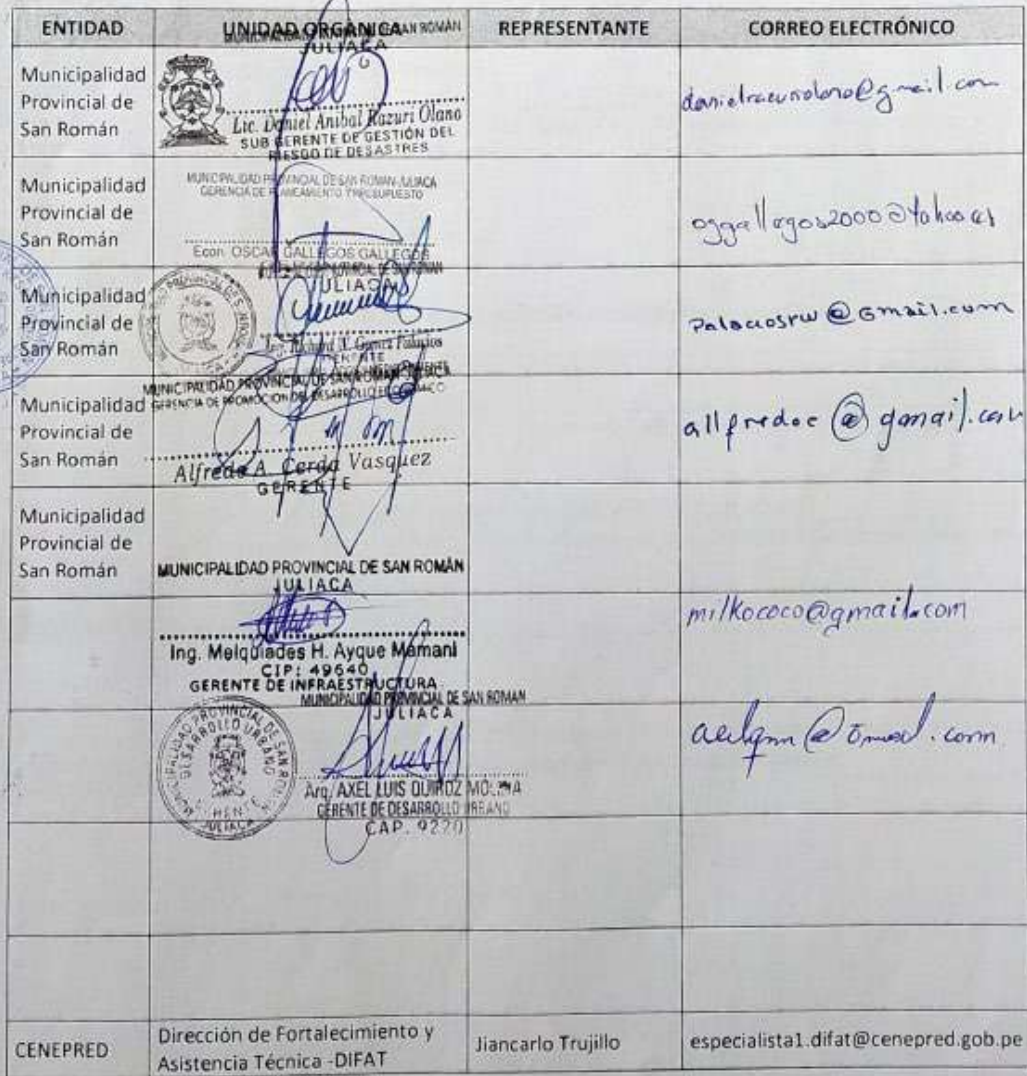 ENTIDAD UNIDAD ORGÁNICA REPRESENTANTE CORREO ELECTRÓNICO
Municipalidad
Provincial de
San Román
JULIACA
Lic. Daniel Anibal Razuri Olano
SUB GERENTE DE GESTIÓN DEL
RIESGO DE DESASTRES
Municipalidad
Provincial de
San Román
MUNICIPALIDAD PROVINCIAL DE SAN ROMAN-JULIACA
GERENCIA DE PLANEAMIENTO Y PRESUPUESTO
Econ. OSCAR GALLEGOS GALLEGOS
Municipalidad
Provincial de
San Román
JULIACA
GERENTE
palaciosrw@gmail.com
Municipalidad
Provincial de
San Román
MUNICIPALIDAD PROVINCIAL DE SAN ROMAN JULIACA
GERENCIA DE PROMOCION DEL DESARROLLO ECONOMICO
Alfredo A. Cerda Vasquez
GERENTE
allfredoc@gmail.com
Municipalidad
Provincial de
San Román
MUNICIPALIDAD PROVINCIAL DE SAN ROMÁN
JULIACA
Ing. Melquiades H. Ayque Mamani
CIP: 49640
GERENTE DE INFRAESTRUCTURA
milkococo@gmail.com
MUNICIPALIDAD PROVINCIAL DE SAN ROMAN
JULIACA
Arq. AXEL LUIS QUIROZ MOLINA
GERENTE DE DESARROLLO URBANO
CAP. 9220
MUNICIPALIDAD PROVINCIAL DE SAN ROMAN
DESARROLLO URBANO
GERENTE
JULIACA
CENEPRED
Dirección de Fortalecimiento y
Asistencia Técnica -DIFAT
Jiancarlo Trujillo
especialista1.difat@cenepred.gob.pe